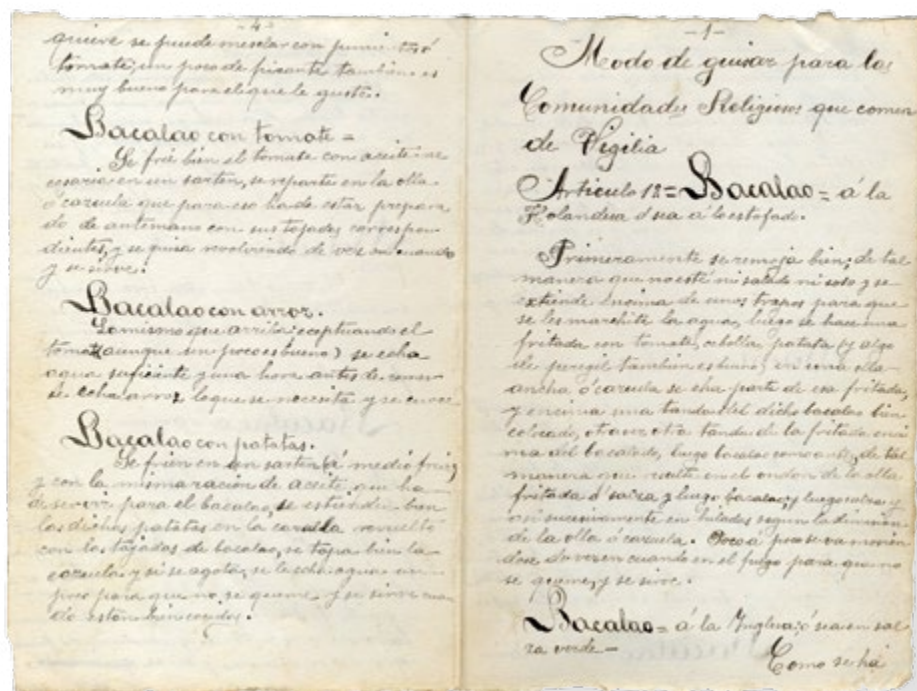 - 4 -
quiere se puede mesclar con pimientos ó
tomate; un poco de picante tambien es
muy bueno para el que le guste.
Bacalao con tomate =
Se frie bien el tomate con aceite ne
cesario en un sarten, se reparte en la olla
ó cazuela que para eso ha de estar prepara
do de antemano con sus tajadas correspon-
dientes, y se guisa revolviendo de vez en cuando
y se sirve.
Bacalao con arroz.
Lo mismo que arriba (eceptuando el
tomate aunque un poco es bueno) se echa
agua suficiente y una hora antes de comer
se echa arroz lo que se necesita y se cuece
Bacalao con patatas.
Se frien en un sarten (á medio freir)
y con la misma ración de aceite, que ha
de servir para el bacalao, se estienden bien
las dichas patatas en la cazuela revuelto
con las tajadas de bacalao, se tapa bien la
cazuela y si se agota, se le echa agua un
poco para que no se queme y se sirve cuan
do esten bien cocidos.
- 1 -
Modo de guisar para las
Comunidades Religiosas que comen
de Vigilia
Articulo 1º = Bacalao = á la
Holandesa ó sea á lo estofado.
Primeramente se remoja bien; de tal
manera que no esté ni salado ni soso y se
extiende encima de unos trapos para que
se les marchite la agua, luego se hace una
fritada con tomate, cebolla, patata (y algo
de peregil tambien es bueno) en una olla
ancha ó cazuela se echa parte de esa fritada,
y encima una tanda del dicho bacalao bien
colocado, otra vez otra tanda de la fritada enci
ma del bacalao, luego bacalao como antes, de tal
manera que resulte en el ondon de la olla
fritada ó salsa y luego bacalao, y luego salsa y
asi sucesivamente en hiladas segun la dimension
de la olla ó cazuela. Poco á poco se va movien
dose de vez en cuando en el fuego para que no
se queme, y se sirve.
Bacalao = á la Inglesa; ó sea en sal
za verde -
Como se há